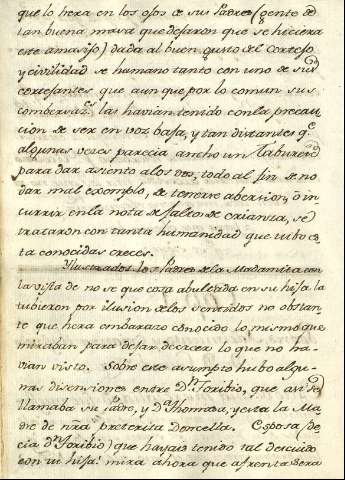 que lo hera en los ojos de sus Padres (gente de
tan buena masa que dejaron que se hiciera
este amasijo) dada al buen gusto del cortejo
y civilidad se humano tanto con uno de sus
cortejantes que aun que por lo comun sus
combersaz.s las havian tenido con la precau
cion de ser en voz baja, y tan distantes q.e
algunas veces parecia ancho un Taburete
para dar asiento a los dos, todo al fin de no
dar mal exemplo, de tenerse abersion, ò in
currir en la nota de falto de crianza, se
trataron con tanta humanidad que hubo es
ta conocidas creces.
Ylustrados los Padres de la Madamita con
la vista de no se que cosa abultada en su hija la
tubieron por ilusion de los sentidos no obstan
te que hera embarazo conocido lo mismo que
miraban para dejar de creer lo que no ha
vian visto. Sobre este asumpto hubo algu
nas disensiones entre D.n Toribio, que asi se
llamaba su Padre, y D.a Thomasa, y esta la Ma
dre de nrã preterita Doncella. Esposa (de
cia D.n Toribio) que hayais tenido tal descuido
con mi hija! mira ahora que afrenta sera